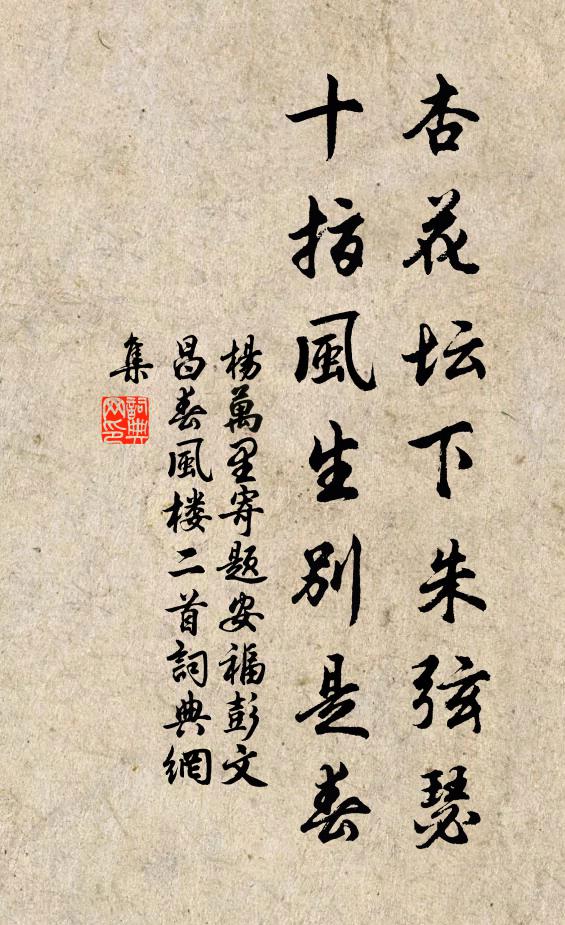 杏花坛下朱弦瑟
十指風生别是春
楊萬里寄題安福彭文
昌春風楼二首詞典網
集
詞典網印